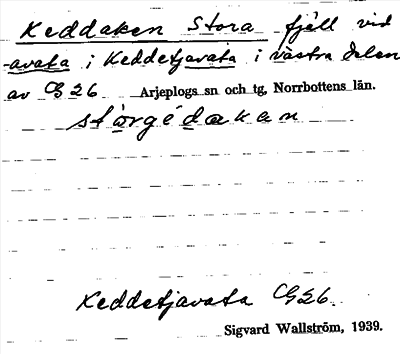 Keddaken Stora fjäll vid
-avata i Keddetjavata i västra delen
av G26 Arjeplogs sn och tg, Norrbottens län.
störgédaken
Keddetjavata G26
Sigvard Wallström, 1939.